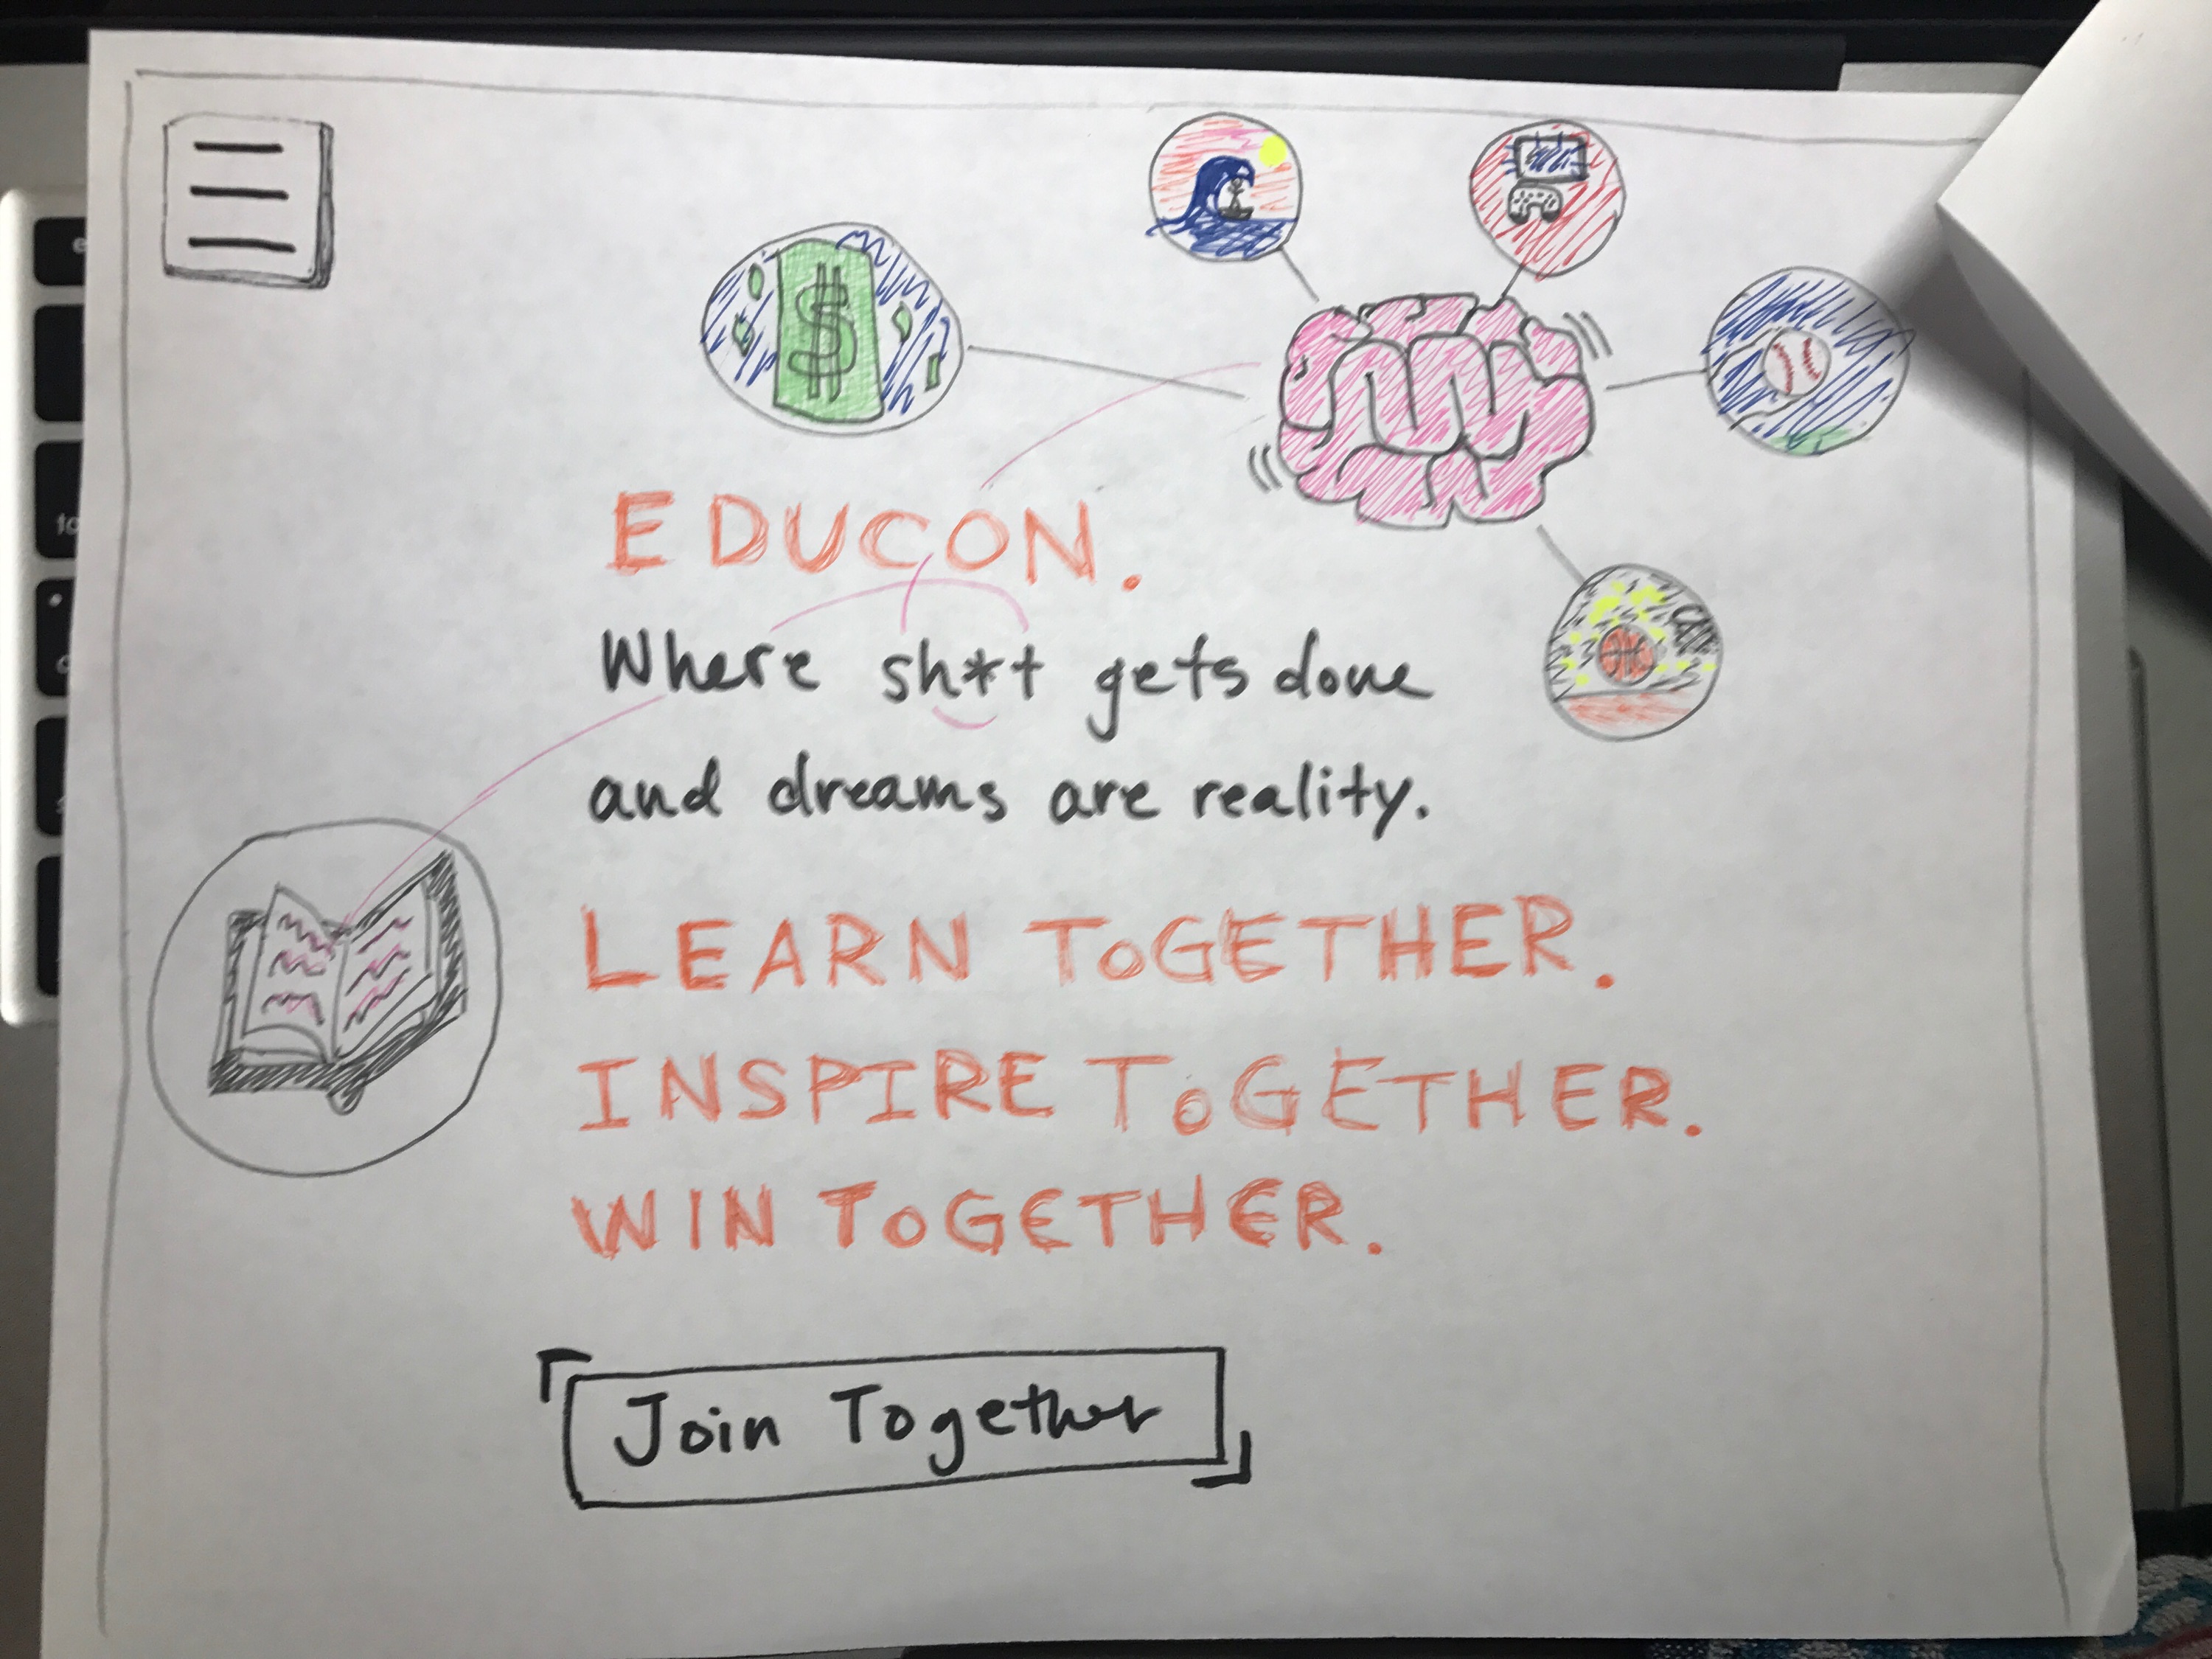 EDUCON.
Where sh*t gets done
and dreams are reality.
LEARN ToGETHER.
INSPIRE ToGETHER.
WIN ToGETHER.
Join Together